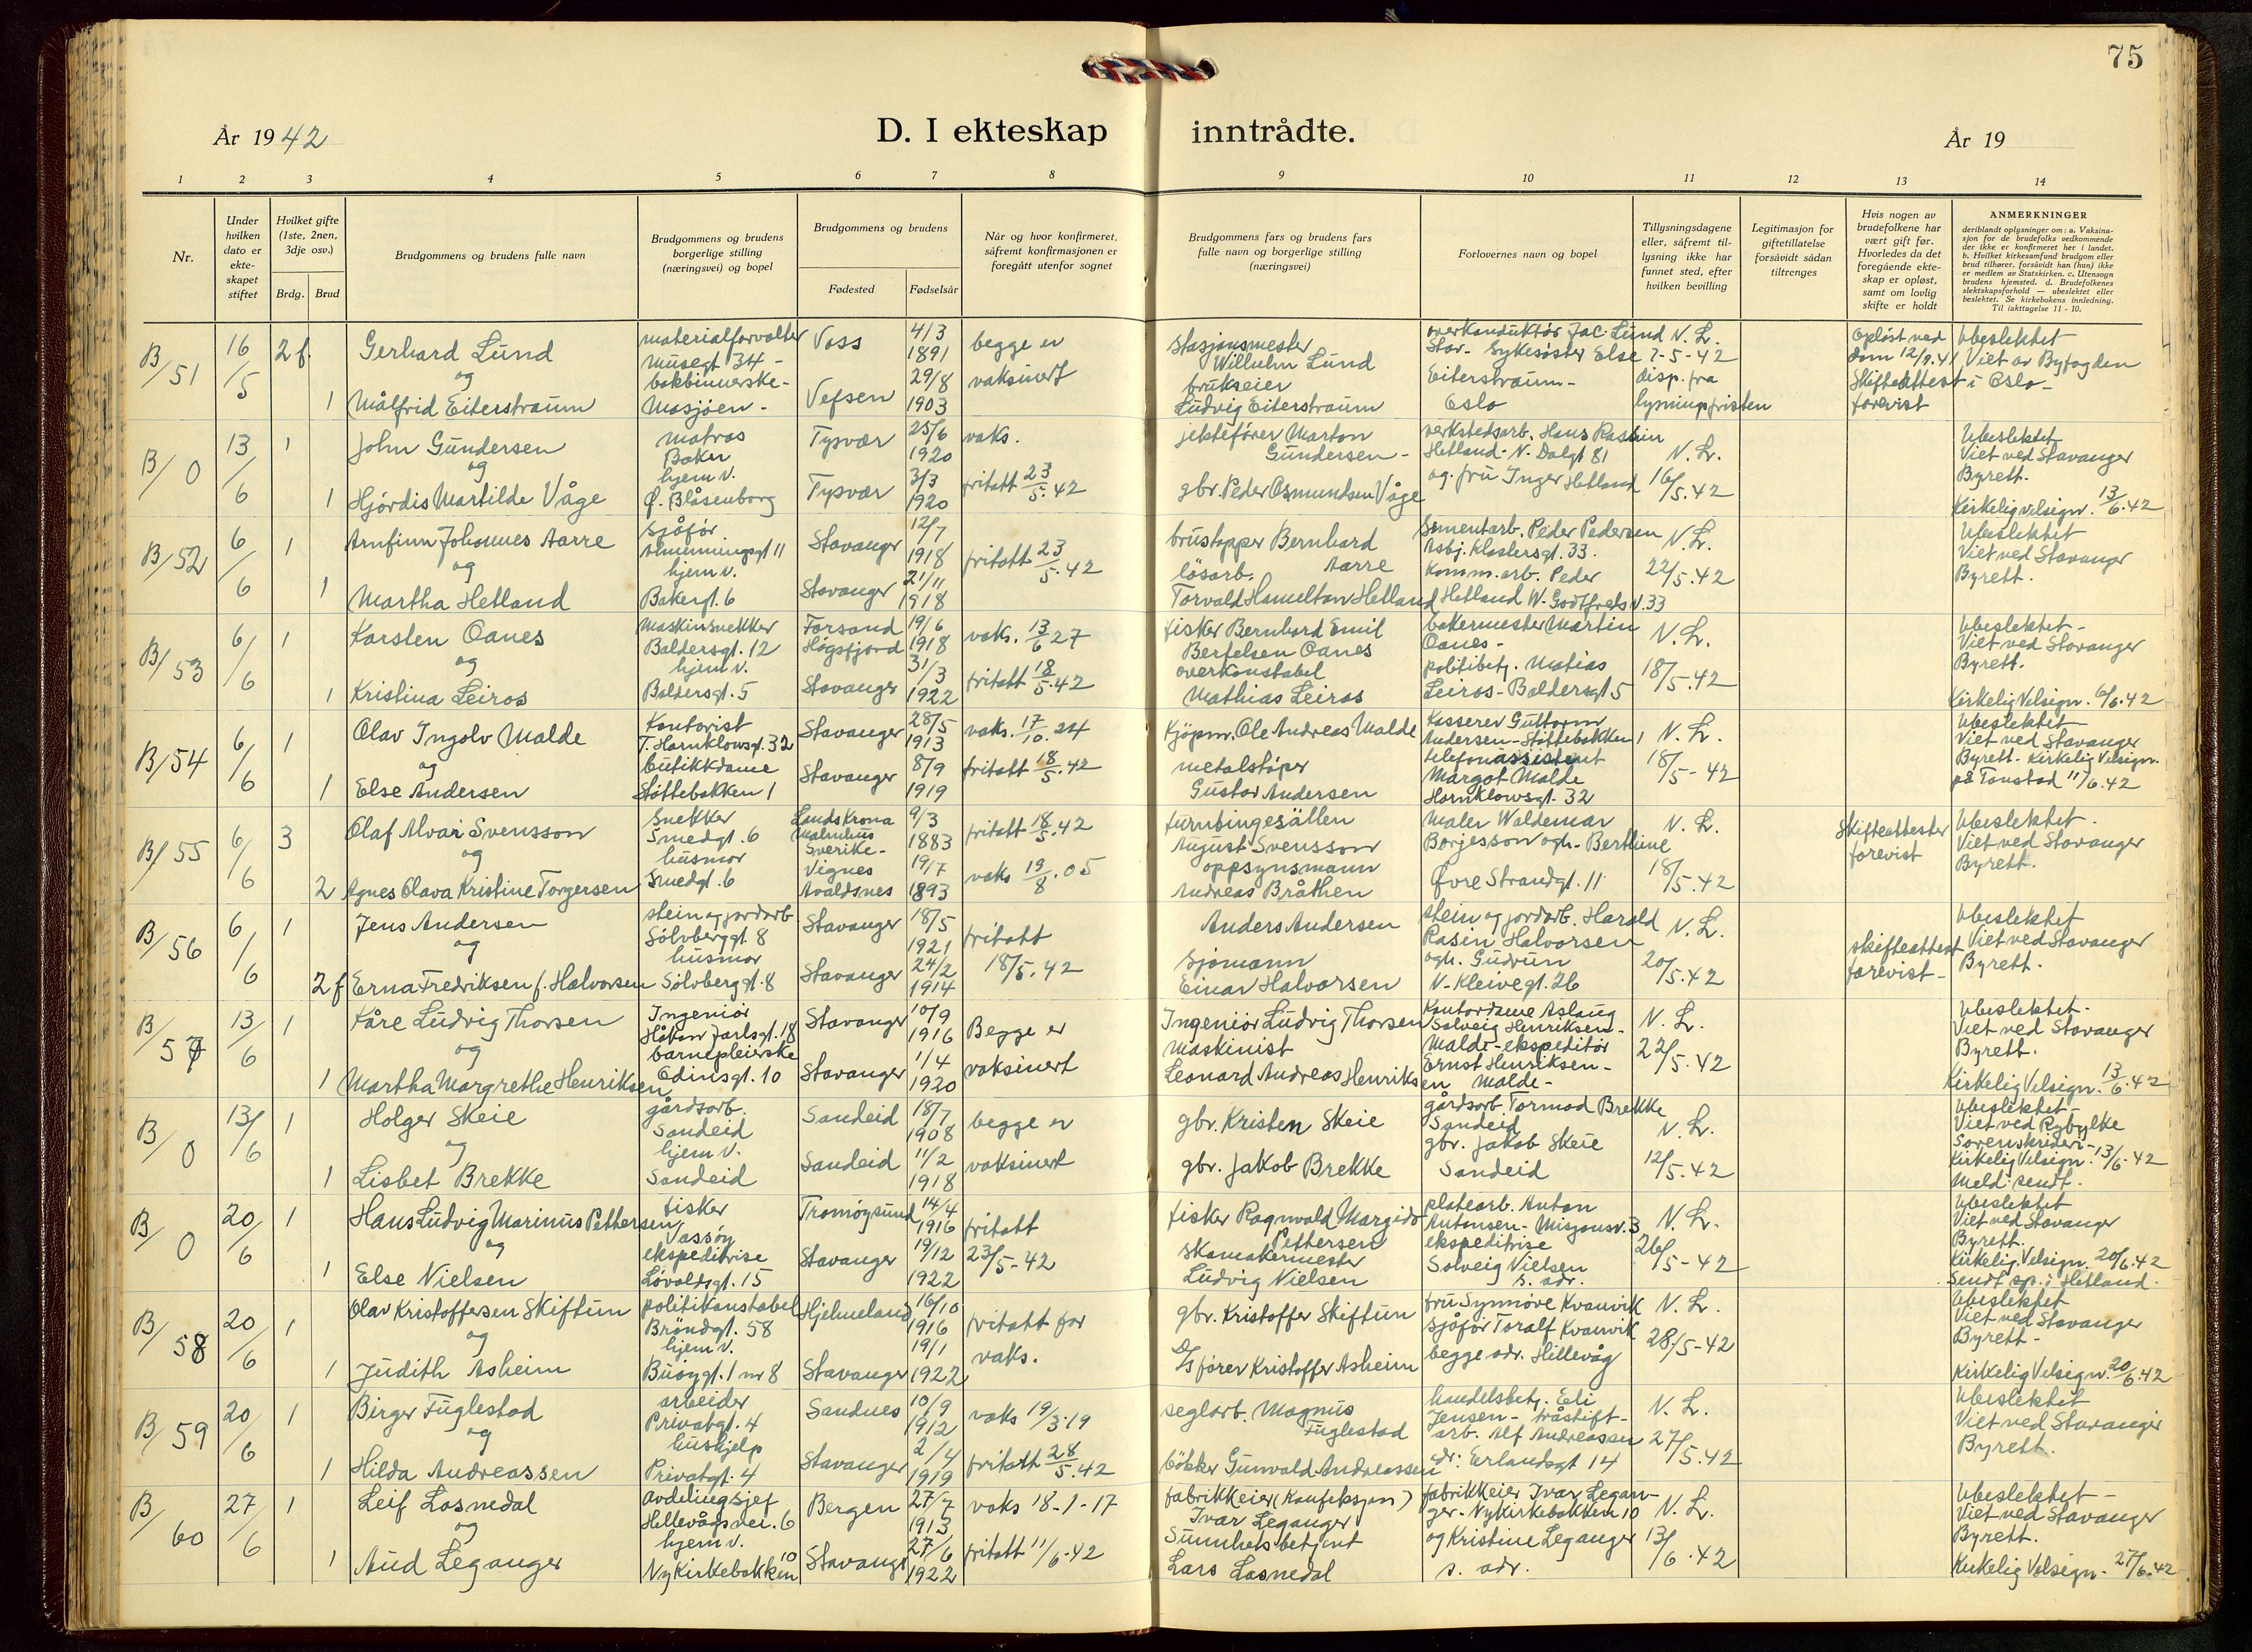 75
År 1942
D. I ekteskap inntrådte.
År 19
1 2 3 4 5 6 7 8 9 10 11 12 13 14
Nr.
Under
hvilken
dato er
ekte-
skapet
stiftet
Hvilket gifte
(1ste, 2nen,
3dje osv.)
Brdg. Brud
Brudgommens og brudens fulle navn
Brudgommens og brudens
borgerlige stilling
(næringsvei) og bopel
Brudgommens og brudens
Fødested Fødselsår
Når og hvor konfirmeret,
såfremt konfirmasjonen er
foregått utenfor sognet
Brudgommens fars og brudens fars
fulle navn og borgerlige stilling
(næringsvei)
Forlovernes navn og bopel
Tillysningsdagene
eller, såfremt til-
lysning ikke har
funnet sted, efter
hvilken bevilling
Legitimasjon for
giftetillatelse
forsåvidt sådan
tiltrenges
Hvis nogen av
brudefolkene har
vært gift før.
Hvorledes da det
foregående ekte-
skap er opløst,
samt om lovlig
skifte er holdt
ANMERKNINGER
deriblandt oplysninger om: a. Vaksina-
sjon for de brudefolks vedkommende
der ikke er konfirmeret her i landet.
b. Hvilket kirkesamfund brudgom eller
brud tilhører, forsåvidt han (hun) ikke
er medlem av Statskirken. c. Utensogn
brudens hjemsted. d. Brudefolkenes
slektskapsforhold — ubeslektet eller
beslektet. Se kirkebokens innledning.
Til iakttagelse 11 - 10.
B/51
16/5
2 f.
1
Gerhard Lund
og
Målfrid Eiterstraum
materialforvalter
Musegt 34 -
bokbinnerske -
Mosjøen -
Voss
Vefsen
4/3
1891
29/8
1903
begge er
vaksinert
stasjonsmester
Wilhelm Lund
brukseier
Ludvig Eiterstraum
overkonduktør Jac. Lund
Stav - Sykesøster Else
Eiterstraum -
Oslo
N. L.
2-5-42
disp. fra
lysningsfristen
Opløst ved
dom 12/9.41
Skifteattest
forevist
Ubeslektet
Viet av Byfogden
i Oslo -
B/0
13/6
1
1
John Gundersen
og
Hjördis Martilde Våge
matros
Boken
hjem v.
Ø. Blåsenborg
Tysvær
Tysvær
25/6
1920
3/3
1920
vaks.
fritatt 23/5.42
jektefører Marton
Gundersen -
gbr. Peder Osmundsen Våge
verkstedsarb. Hans
Hetland - N. Dalgt 81
og fru Inger Hetland
N. L.
16/5.42
Ubeslektet
Viet ved Stavanger
Byrett.
Kirkelig velsign. 13/6.42
B/52
6/6
1
1
Arnfinn Johannes Aarre
og
Martha Hetland
sjåfør
Almenningsgt 11
hjem v.
Bakergt. 6
Stavanger
Stavanger
12/7
1918
21/11
1918
fritatt 23/5.42
brustopper Bernhard
Aarre
løsarb.
Torvald Hamelton Hetland
Sementarb. Peder Pedersen
Asbj. Klostersgt. 33.
Komm. arb. Peder
Hetland W. Godtfreds v. 33
N. L.
22/5.42
Ubeslektet
Viet ved Stavanger
Byrett.
B/53
6/6
1
1
Karsten Oanes
og
Kristina Leiros
Maskinsnekker
Baldersgt. 12
hjem v.
Baldersgt. 5
Forsand
Høgsfjord
Stavanger
19/6
1918
31/3
1922
vaks. 13/6 27
fritatt 18/5.42
fisker Bernhard Emil
Bertelsen Oanes
overkonstabel
Mathias Leiros
bakermester Martin
Oanes -
politibetj. Matias
Leiros - Baldersgt 5
N. L.
18/5.42
Ubeslektet -
Viet ved Stavanger
Byrett.
Kirkelig Velsign. 6/6.42
B/54
6/6
1
1
Olav Ingolv Malde
og
Else Andersen
Kontorist
T. Hornklowsgt. 32
butikkdame
Støttebakken 1
Stavanger
Stavanger
28/5
1913
8/9
1919
vaks. 17/10.24
fritatt 18/5.42
Kjøpm. Ole Andreas Malde
metalstøper
Gustav Andersen
Kasserer Guttorm
Andersen - Støttebakken 1
telefonassistent
Margot Malde
Hornklowsgt. 32
N. L.
18/5-42
Ubeslektet -
Viet ved Stavanger
Byrett - Kirkelig Velsign.
på Tonstad 11/6.42
B/55
6/6
3
2
Olaf Alvar Svensson
og
Agnes Olava Kristine Torgersen
Snekker
Smedgt. 6
husmor
Smedgt. 6
Landskrona
Malmhus
Sverike -
Vignes
Avaldsnes
9/3
1883
19/7
1893
fritatt 18/5.42
vaks 19/8.05
August Svensson
oppsynsmann
Andreas Bråthen
Maler Waldemar
Borjesson ogh. Berthine
Øvre Strandgt. 11
N. L.
18/5.42
Skifteattester
forevist
Ubeslektet.
Viet ved Stavanger
Byrett.
B/56
6/6
1
2 f
Jens Andersen
og
Erna Fredriksen f. Halvorsen
stein og jordarb.
Sölvberggt. 8
husmor
Sölvberggt. 8
Stavanger
Stavanger
18/5
1921
24/2
1914
fritatt
18/5.42
Anders Andersen
Sjømann
Einar Halvorsen
stein og jordarb. Harald
Rasin Halvorsen
ogh. Gudrun
V-Kleivegt. 26
N. L.
20/5.42
skifteattest
forevist -
Ubeslektet
Viet ved Stavanger
Byrett.
B/57
13/6
1
1
Kåre Ludvig Thorsen
og
Martha Margrethe Henriksen
Ingeniør
Håkon Jarlsgt. 18
barnepleierske
Odinsgt. 10
Stavanger
Stavanger
10/9
1916
1/4
1920
Begge er
vaksinert
Ingeniör Ludvig Thorsen
Maskinist
Leonard Andreas Henriksen
Kontordame Aslaug
Solveig Henriksen -
Malde - ekspeditør
Ernst Henriksen -
Malde -
N. L.
22/5.42
Ubeslektet -
Viet ved Stavanger
Byrett.
Kirkelig Velsign. 13/6.42
B/0
13/6
1
1
Holger Skeie
og
Lisbet Brekke
gårdsarb.
Sandeid
hjem v.
Sandeid
Sandeid
Sandeid
18/7
1908
11/2
1918
begge er
vaksinert
gbr. Kristen Skeie
gbr. Jakob Brekke
gårdsarb. Tormod Brekke
Sandeid
gbr. Jakob Skeie
Sandeid
N. L.
12/5.42
Ubeslektet -
Viet ved Ryfylke
Sorenskriveri -
Kirkelig Velsign. 13/6.42
Meld. sendt.
B/0
20/6
1
1
Hans Ludvig Marinus Pethersen
og
Else Nielsen
fisker
Vassøy
ekspeditrise
Løvoldsgt. 15
Tromøysund
Stavanger
14/4
1916
19/12
1922
fritatt
23/5-42
fisker Ragnvald Margido
Pethersen
skomakermester
Ludvig Nielsen
platearb. Anton
Antonsen - Misjonsv. 3
ekspeditrise
Solveig Nielsen
s. adr.
N. L.
26/5-42
Ubeslektet
Viet ved Stavanger
Byrett.
Kirkelig Velsign. 20/6.42
Sendt sp. i Hetland.
B/58
20/6
1
1
Olav Kristoffersen Skiftun
og
Judith Asheim
politikonstabel
Bröndgt. 58
hjem v.
Buøygt. 1 nr 8
Hjelmeland
Stavanger
16/10
1916
19/1
1922
fritatt for
vaks.
gbr. Kristoffer Skiftun
D/s fører Kristoffer Asheim
fru Synnöve Kvanvik
sjåför Toralf Kvanvik
begge adr. Hillevåg
N. L.
28/5-42
Ubeslektet
Viet ved Stavanger
Byrett -
Kirkelig Velsign. 20/6.42
B/59
20/6
1
1
Birger Fuglestad
og
Hilda Andreassen
arbeider
Privatgt. 4
hushjelp
Privatgt. 4
Sandnes
Stavanger
10/9
1912
2/4
1919
vaks 19/3.19
fritatt 28/5.42
seglarb. Magnus
Fuglestad
bökker Gunvald Andreassen
handelsbetj. Eli
Jensen - tråstift-
arb. Alf Andreassen
adr: Erlandsgt 14
N. L.
27/5.42
Ubeslektet
Viet ved Stavanger
Byrett.
B/60
27/6
1
1
Leif Losnedal
og
Aud Leganger
Avdelingsjef
Hellevågsvei. 6
hjem v.
Nykirkebakken 10
Bergen
Stavanger
27/7
1913
27/6
1922
vaks 18-1-17
fritatt 11/6.42
fabrikkeier (Konfeksjon)
Ivar Leganger
Sunnhetsbetjent
Lars Losnedal
fabrikkeier Ivar Legan-
ger - Nykirkebakken 10
og Kristine Leganger
s. adr.
N. L.
13/6.42
Ubeslektet -
Viet ved Stavanger
Byrett.
Kirkelig Velsign - 27/6.42